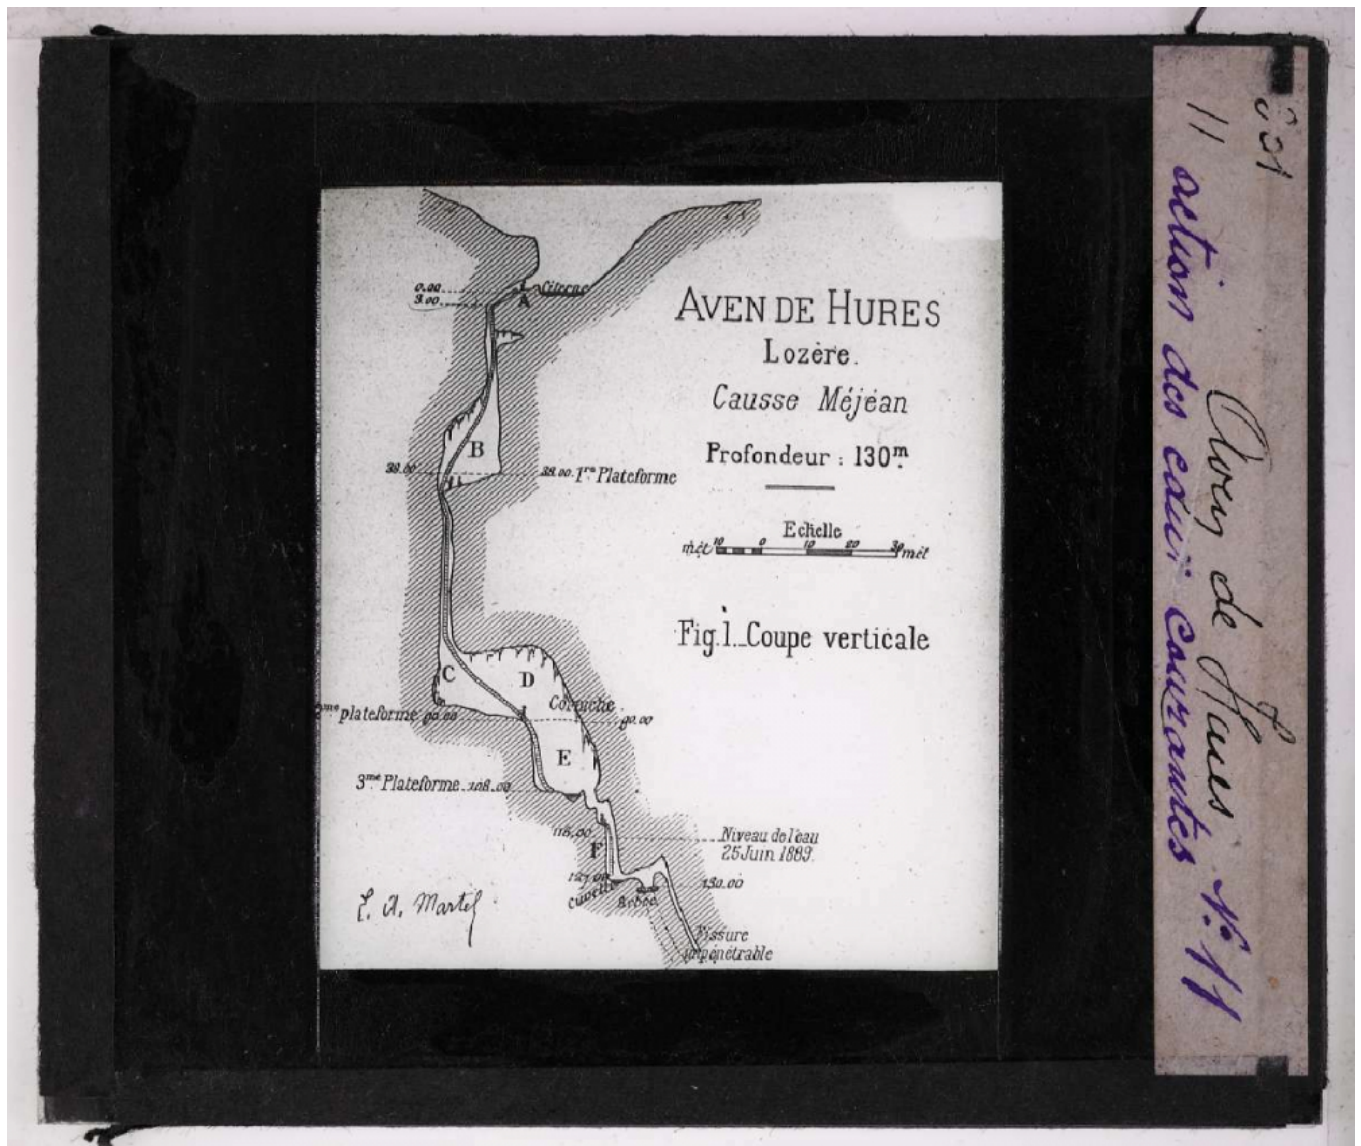 AVEN DE HURES
Lozère.
Causse Méjean
Profondeur : 130m
Echelle
mèt 10 0 10 20 30 mèt
Fig. 1._Coupe verticale
0.00
3.00
A
Citerne
B
38.00
38.00. 1re Plateforme
C
D
Corniche
2me plateforme 90.00
90.00
E
3me Plateforme 108.00
116.00
Niveau de l'eau
25 Juin 1889.
F
127.00
Cuvette
130.00
Fissure
impénétrable
E. A. Martel
11
Aven de Hures N° 11
action des eaux courantes